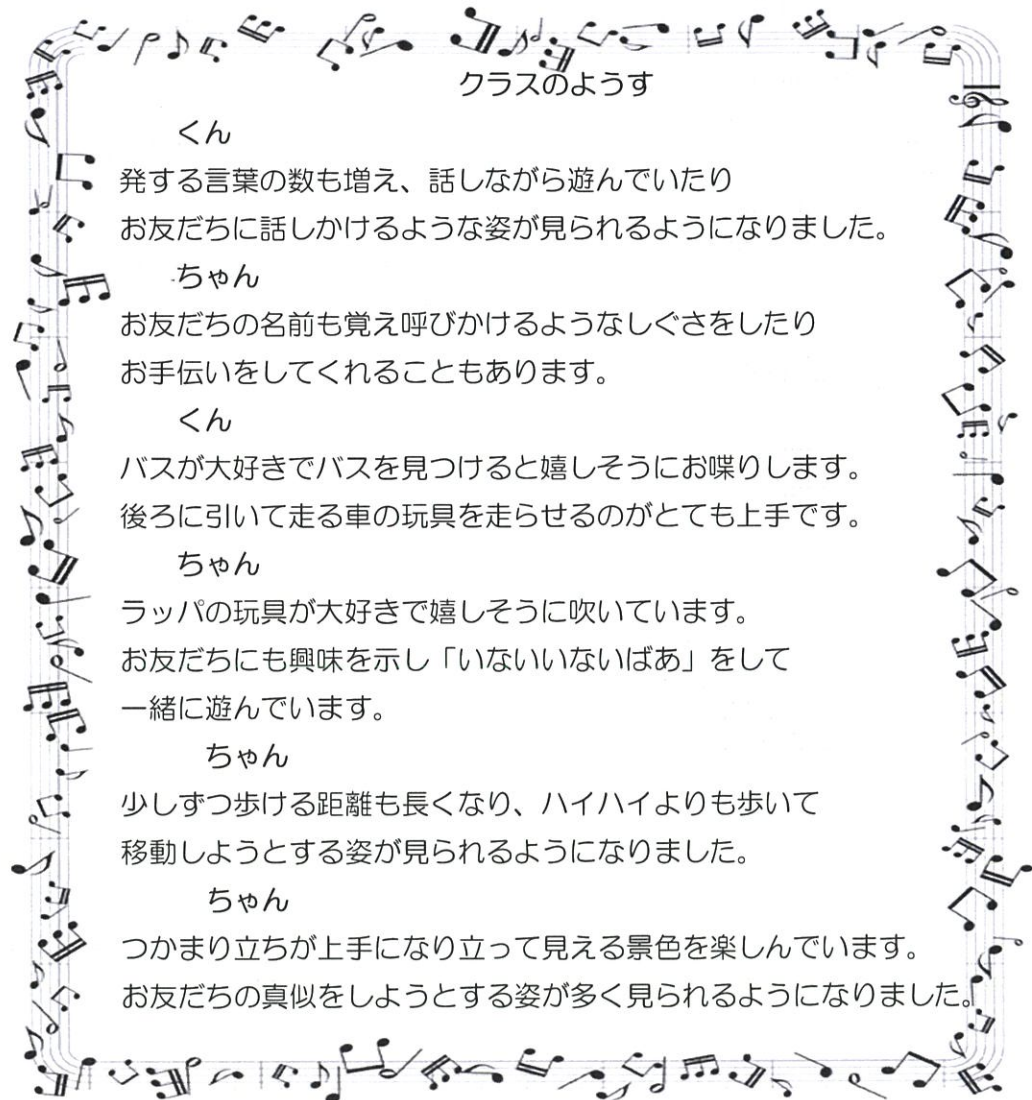 クラスのようす
くん
発する言葉の数も増え、話しながら遊んでいたり
お友だちに話しかけるような姿が見られるようになりました。
ちゃん
お友だちの名前も覚え呼びかけるようなしぐさをしたり
お手伝いをしてくれることもあります。
くん
バスが大好きでバスを見つけると嬉しそうにお喋りします。
後ろに引いて走る車の玩具を走らせるのがとても上手です。
ちゃん
ラッパの玩具が大好きで嬉しそうに吹いています。
お友だちにも興味を示し「いないいないばあ」をして
一緒に遊んでいます。
ちゃん
少しずつ歩ける距離も長くなり、ハイハイよりも歩いて
移動しようとする姿が見られるようになりました。
ちゃん
つかまり立ちが上手になり立って見える景色を楽しんでいます。
お友だちの真似をしようとする姿が多く見られるようになりました。